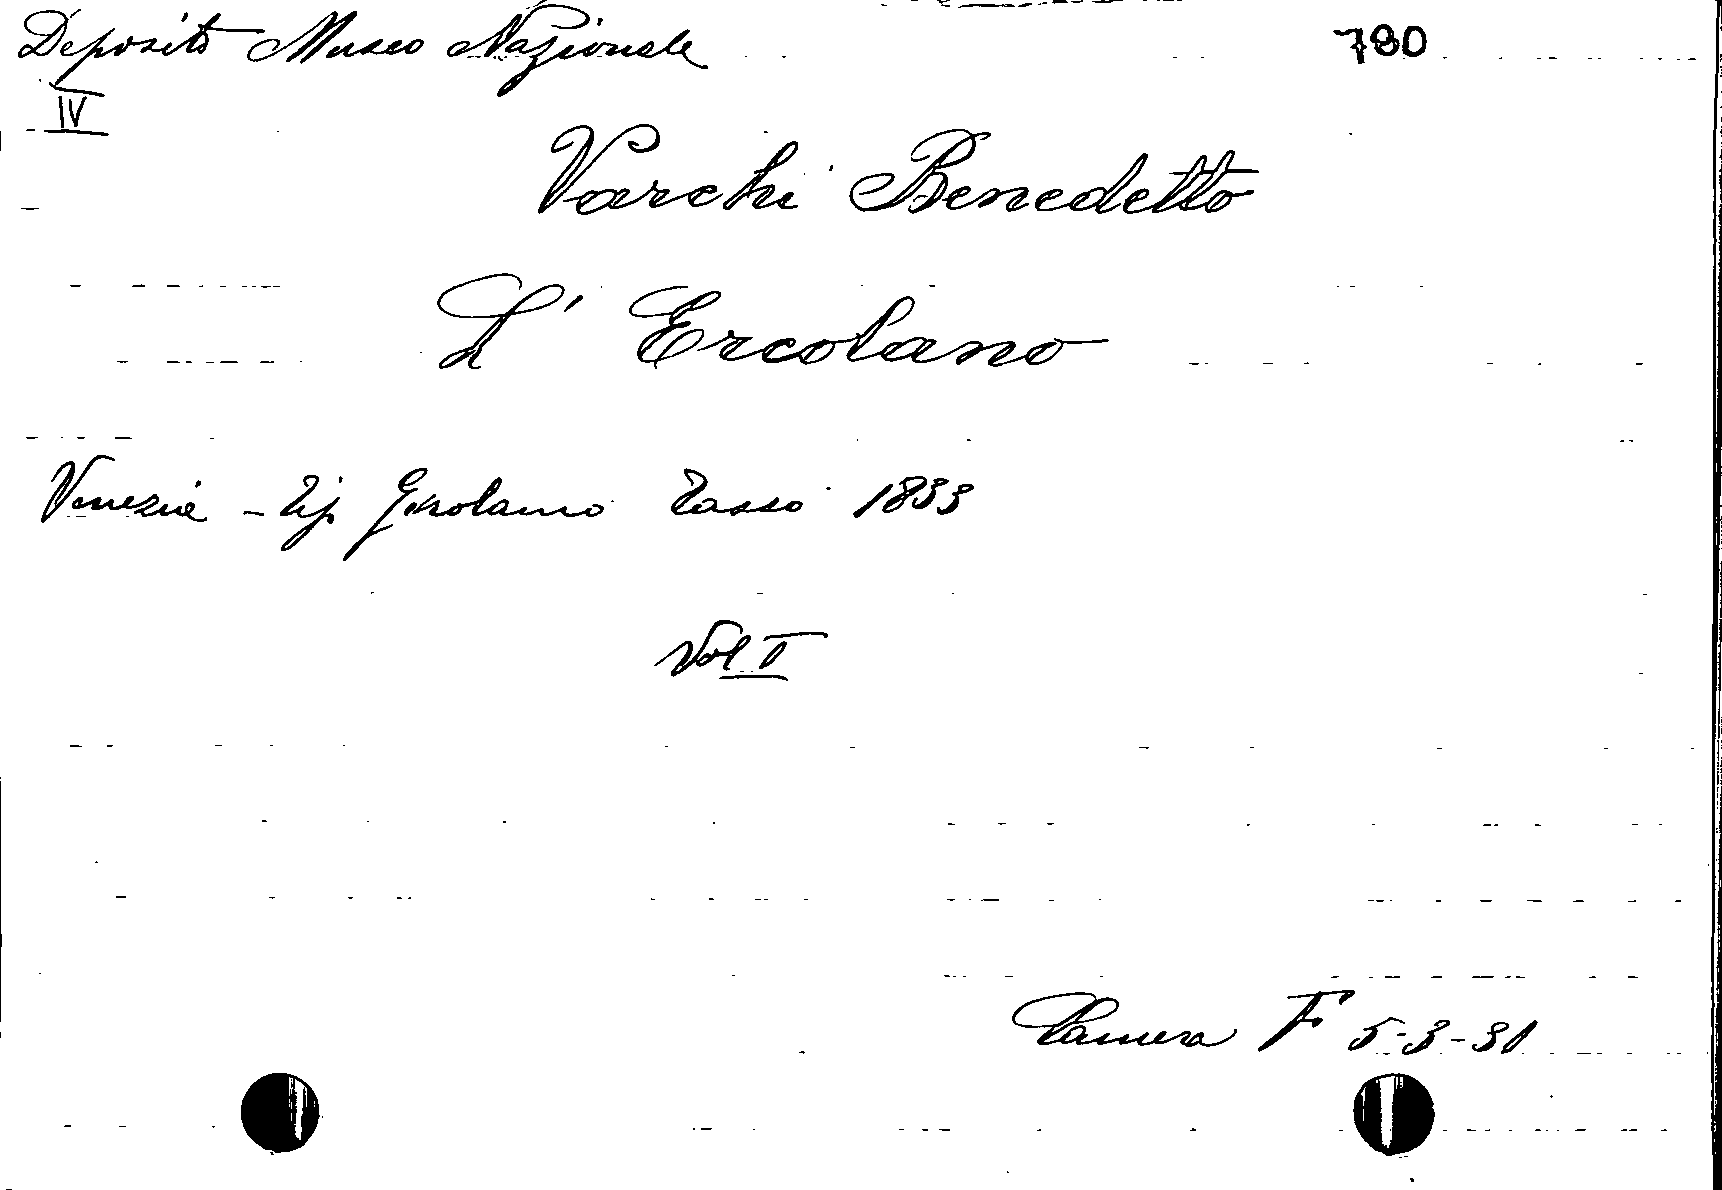 Deposito Museo Nazionale 780
IV
Varchi Benedetto
L' Ercolano
Venezia - Tip Girolamo Tasso 1833
Vol I
Camera F 5-3-31